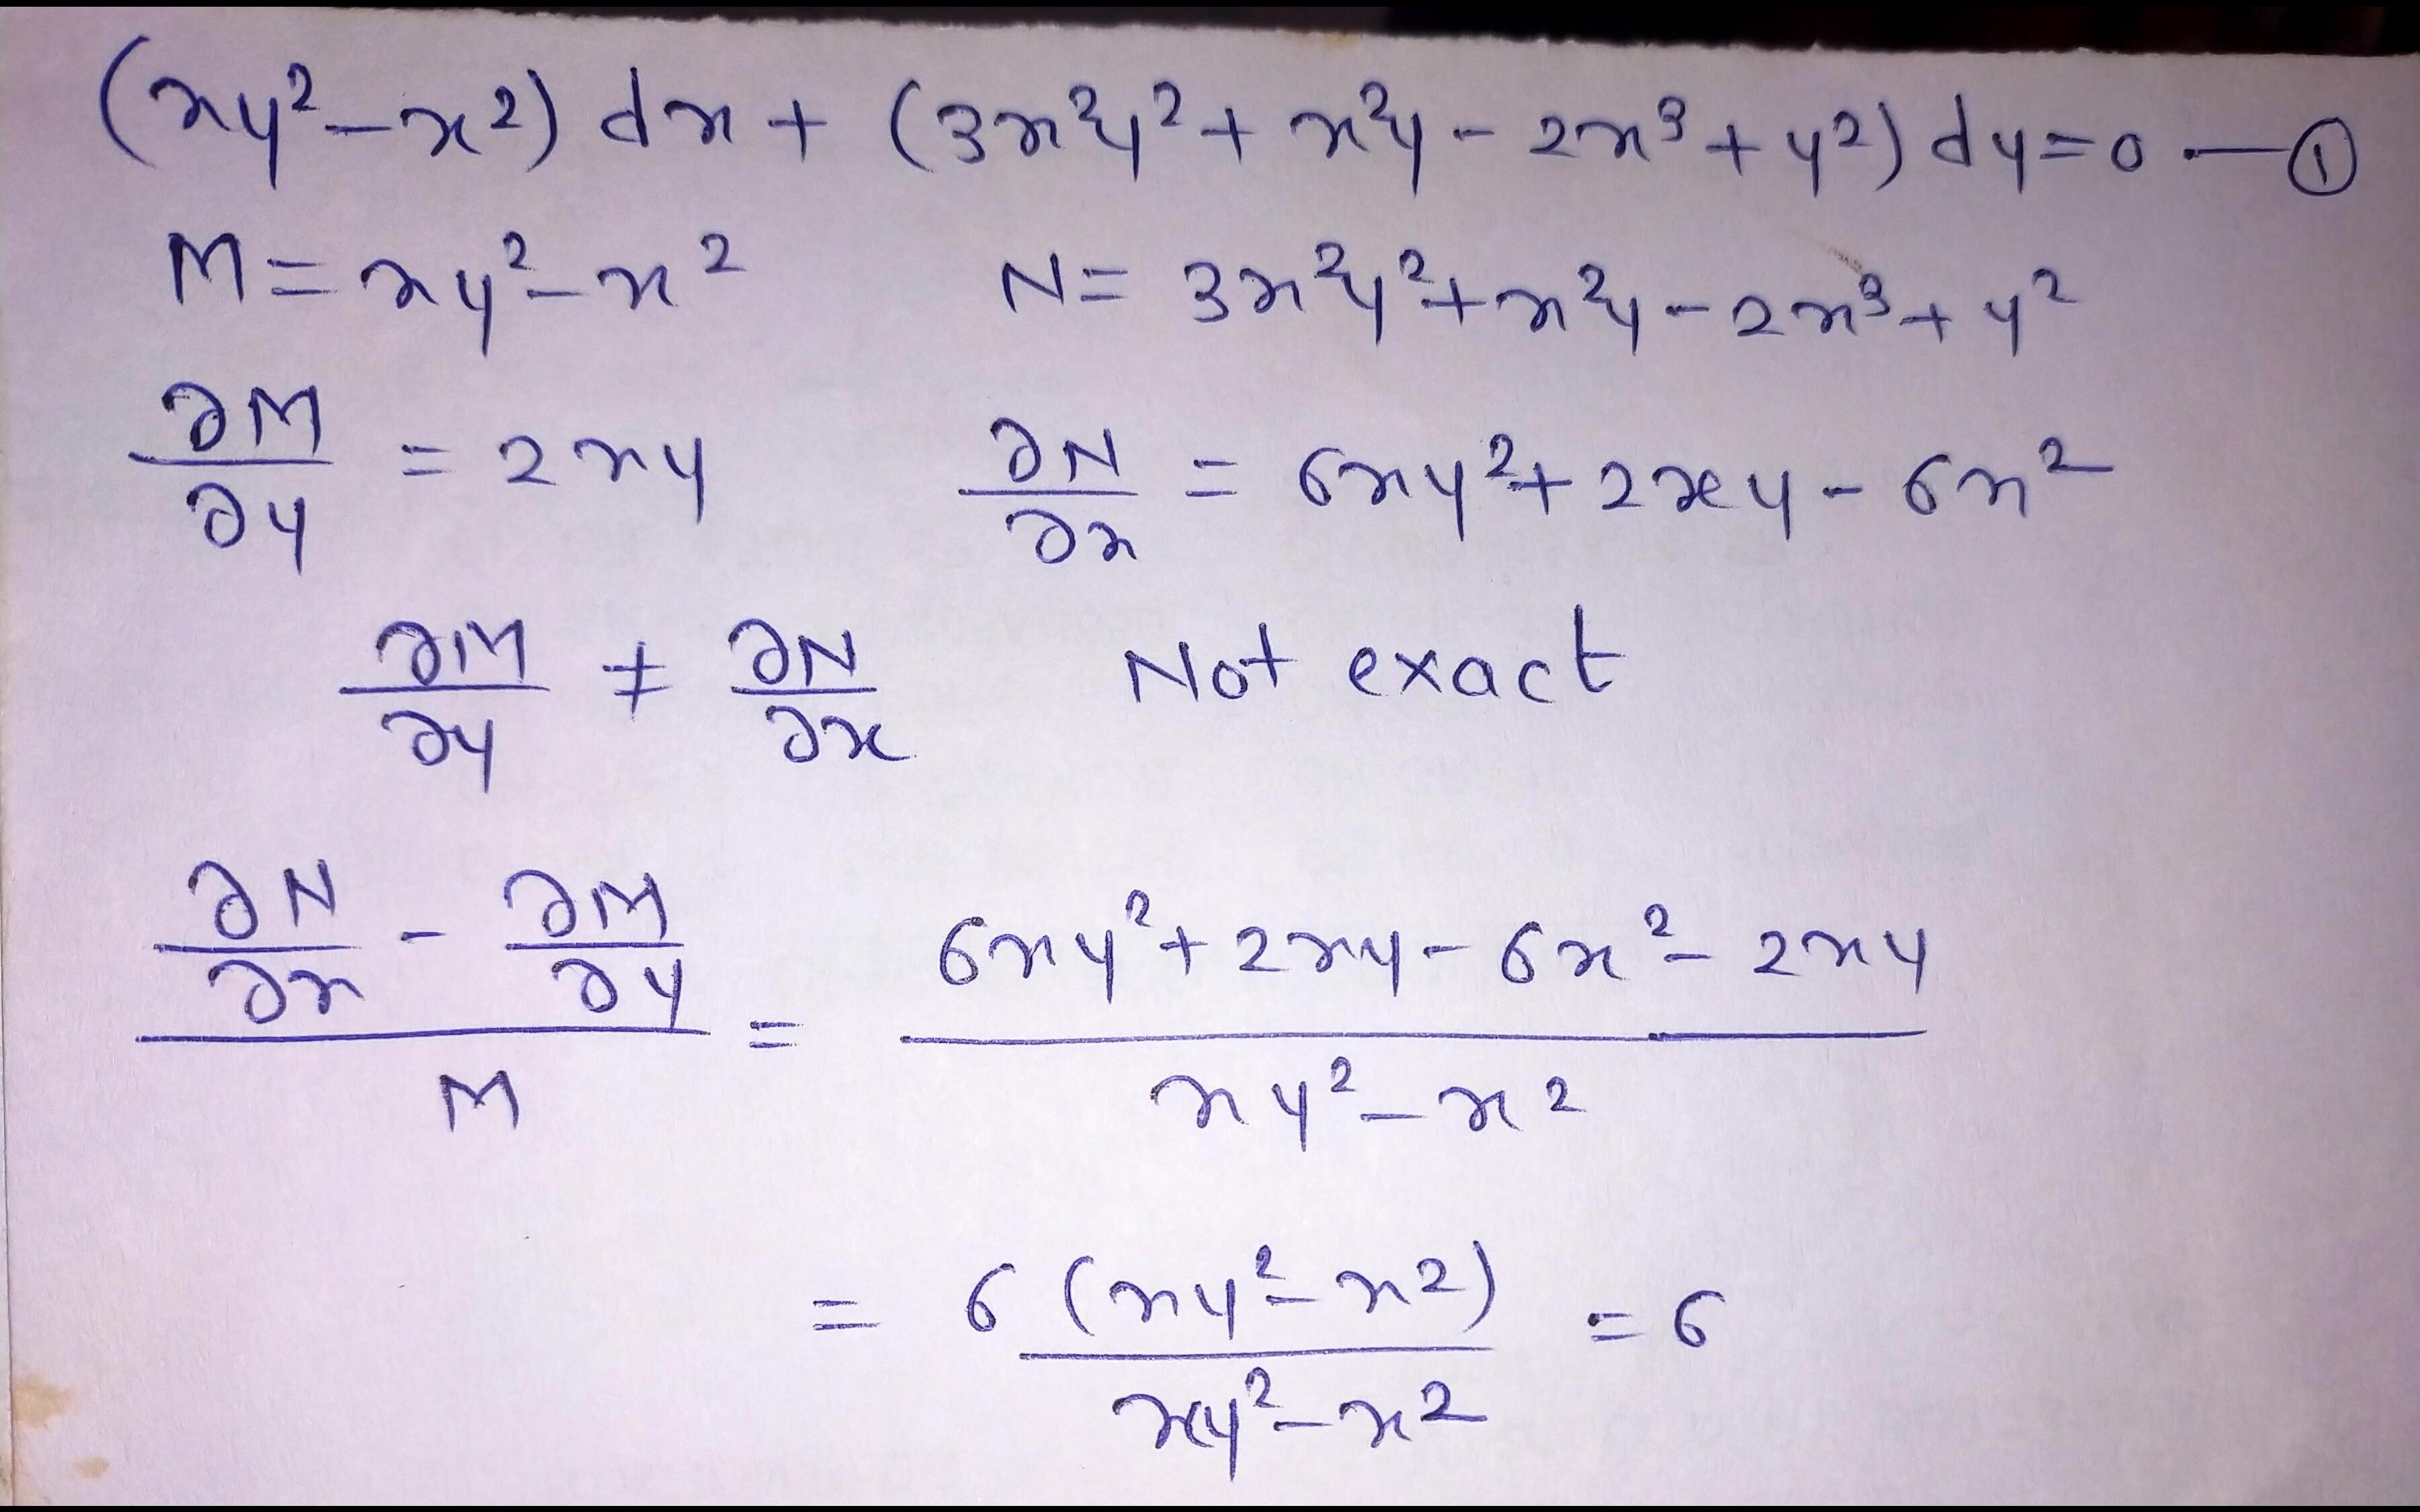 (xy² - x²) dx + (3x²y² + x²y - 2x³ + y²) dy = 0 — ①
M = xy² - x² N = 3x²y² + x²y - 2x³ + y²
∂M/∂y = 2xy ∂N/∂x = 6xy² + 2xy - 6x²
∂M/∂y ≠ ∂N/∂x Not exact
(∂N/∂x - ∂M/∂y)/M = (6xy² + 2xy - 6x² - 2xy)/(xy² - x²)
= 6 (xy² - x²)/(xy² - x²) = 6